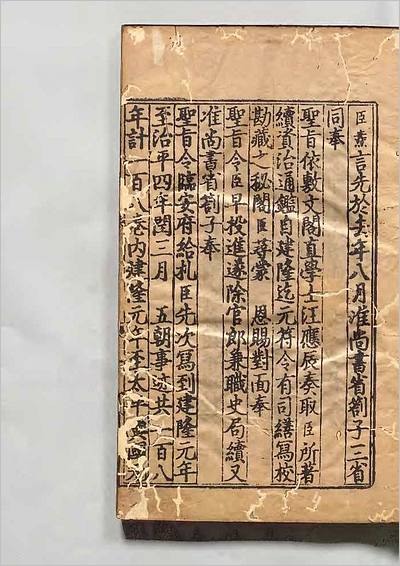 臣燾言先於去年八月准尚書省劄子三省
同奉
聖旨依敷文閣直學士汪應辰奏取臣所著
續資治通鑑自建隆迄元符令有司繕寫校
勘藏之秘閣臣蒙 恩賜對面奉
聖旨令臣早投進遂除官郎兼職史局續又
准尚書省劄子奉
聖旨令臨安府給札臣先次寫到建隆元年
至治平四年閏三月 五朝事迹共一百八
年計一百八 内建隆元年至太平興國